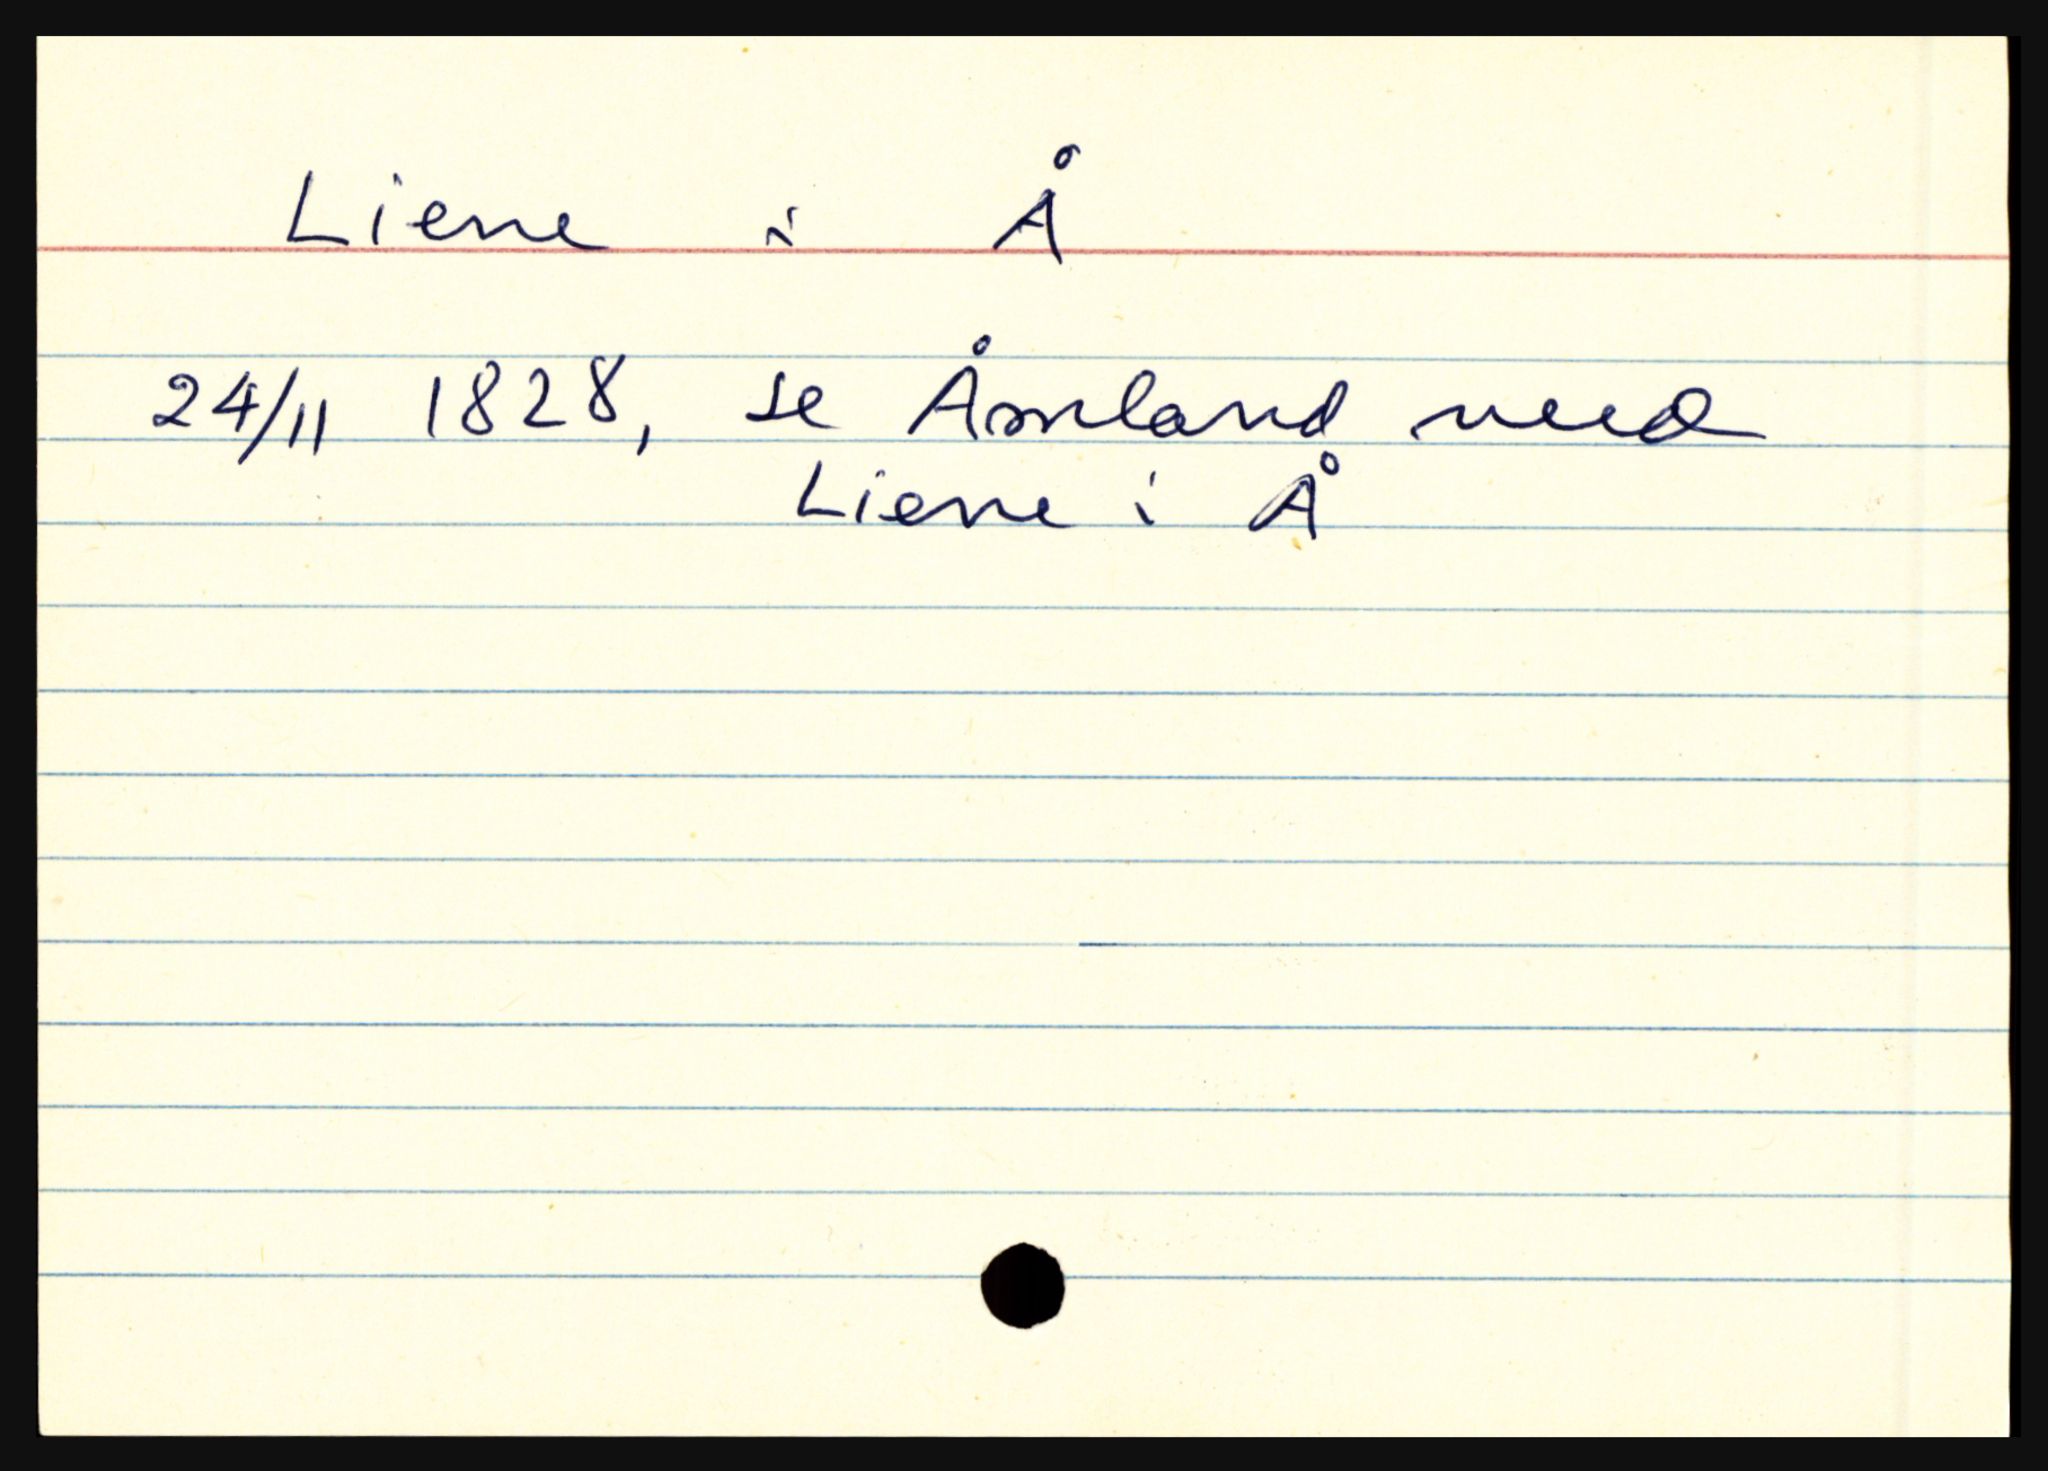 Liene i Å
24/11 1828, se Åmland med
Liene i Å